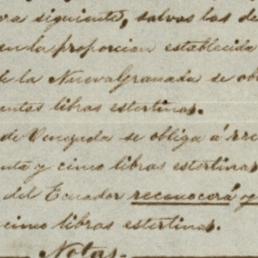 ra siguiente, salvas las de
en la proporcion establecida
de la Nueva Granada se ob
entas libras esterlinas.
de Venezuela se obliga á rec
nta y cinco libras esterlinas
del Ecuador reconocerá y
cinco libras esterlinas.
Notas.